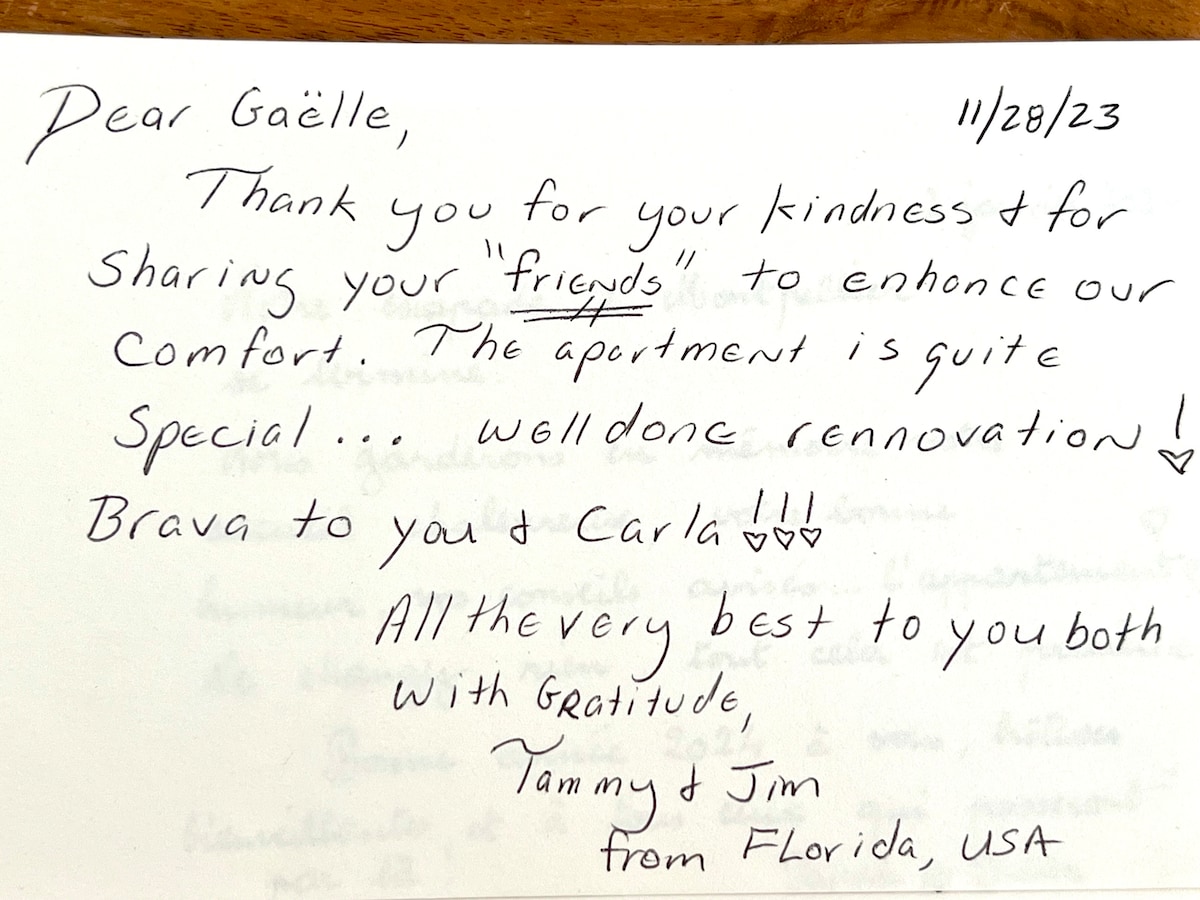 Dear Gaëlle, 11/28/23
Thank you for your kindness & for
sharing your "friends" to enhance our
comfort. The apartment is quite
special... well done rennovation!
Brava to you & Carla!!!
All the very best to you both
with Gratitude,
Tammy & Jim
from Florida, USA